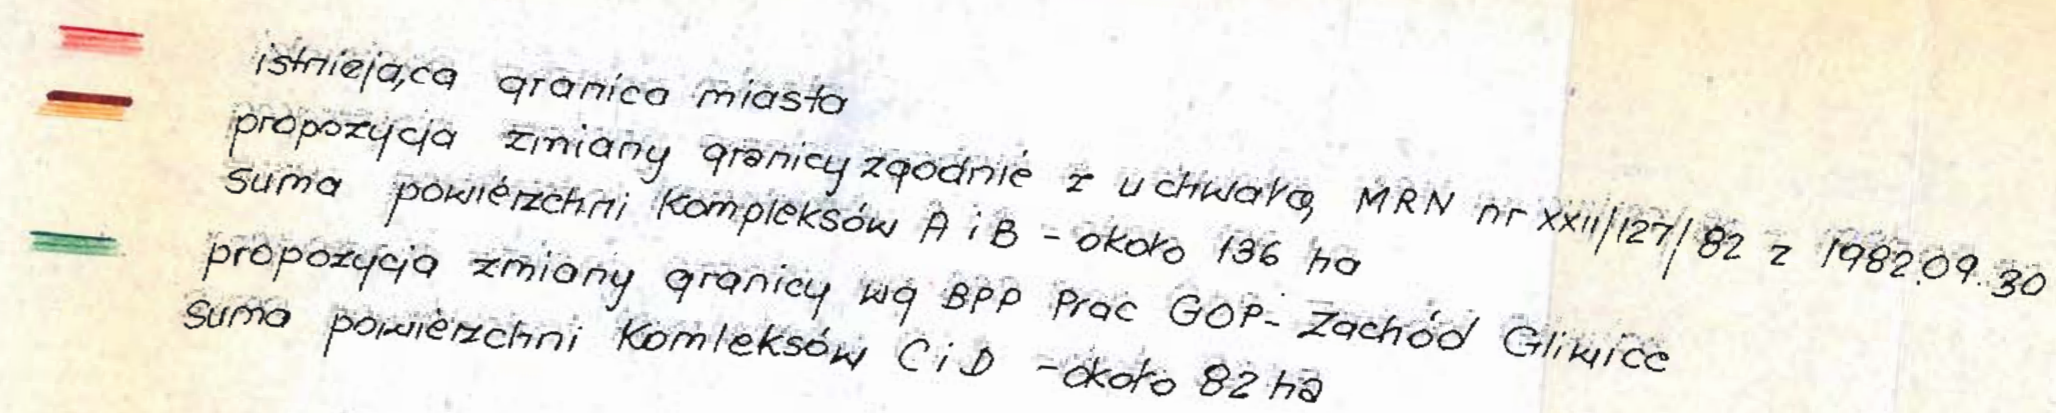 istniejąca granica miasta
propozycja zmiany granicy zgodnie z uchwałą MRN nr XXII/127/82 z 1982.09.30
suma powierzchni kompleksów A i B - około 136 ha
propozycja zmiany granicy wg BPP Prac GOP-Zachód Gliwice
suma powierzchni komleksów C i D - około 82 ha